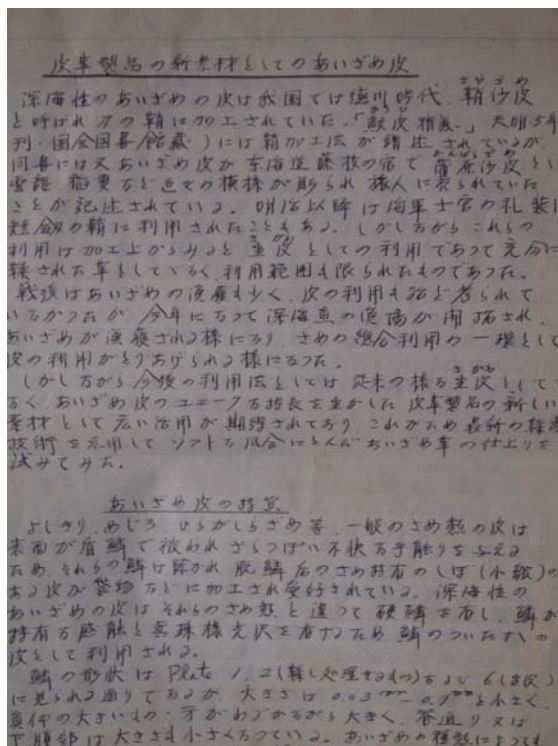 皮革製品の新素材としてのあいざめ皮
深海性のあいざめの皮は我国では徳川時代、鞘沙皮
と呼ばれ刀の鞘に加工されていた。「鮫皮精義」天明5年
刊・国会図書館蔵)には鞘加工法が精述されているが、
同書には又あいざめ皮が東海道藤枝の宿で蒲原沙皮とし
稲妻など近世の模様が彫られ旅人に売られていた
ことが記述されている。明治以降は海軍士官の礼装
短剣の鞘に利用されたこともある。しかしながらこれらの
利用は加工上からみると生皮としての利用であって充分に
鞣された革としてでなく、利用範囲も限られたものであった。
戦後はあいざめの漁獲も少く、皮の利用も殆ど考られて
いなかったが、今年になって深海魚の漁場が開拓され、
あいざめが漁獲される様になり、さめの総合利用の一環として
皮の利用がとりあげられる様になった。
しかしながら今後の利用法としては従来の様な生皮として
なく、あいざめ皮のユニークな特長を生かした皮革製品の新しい
素材として広い活用が期待されており、これがため最新の鞣
技術を応用してソフトな風合にとんだあいざめ革の仕上りを
試みてみた。
あいざめ皮の特質
よしきり、めじろ、ひらがしらざめ等、一般のさめ類の皮は
表面が盾鱗で被われざらっぽい不快な手触りを与える
ため、それらの鱗は除かれ脱鱗后のさめ特有のしぼ(小皺)の
ある皮が袋物などに加工され愛好されている。深海性の
あいざめの皮はそれらのさめ類と違って硬鱗を有し、鱗が
特有な感触と真珠様光沢を有するため鱗のついたまゝの
皮として利用される。
鱗の形状は Plate 1.2(鞣し処理せるもの)および6(古皮)
に見られる通りであるが、大きさは0.03mm―0.9mmと小さく、
真体の大きいもの、牙がわづかながら大きく、脊通り又は
下腹部は大きさも小さくなっている。あいざめの種類によっても